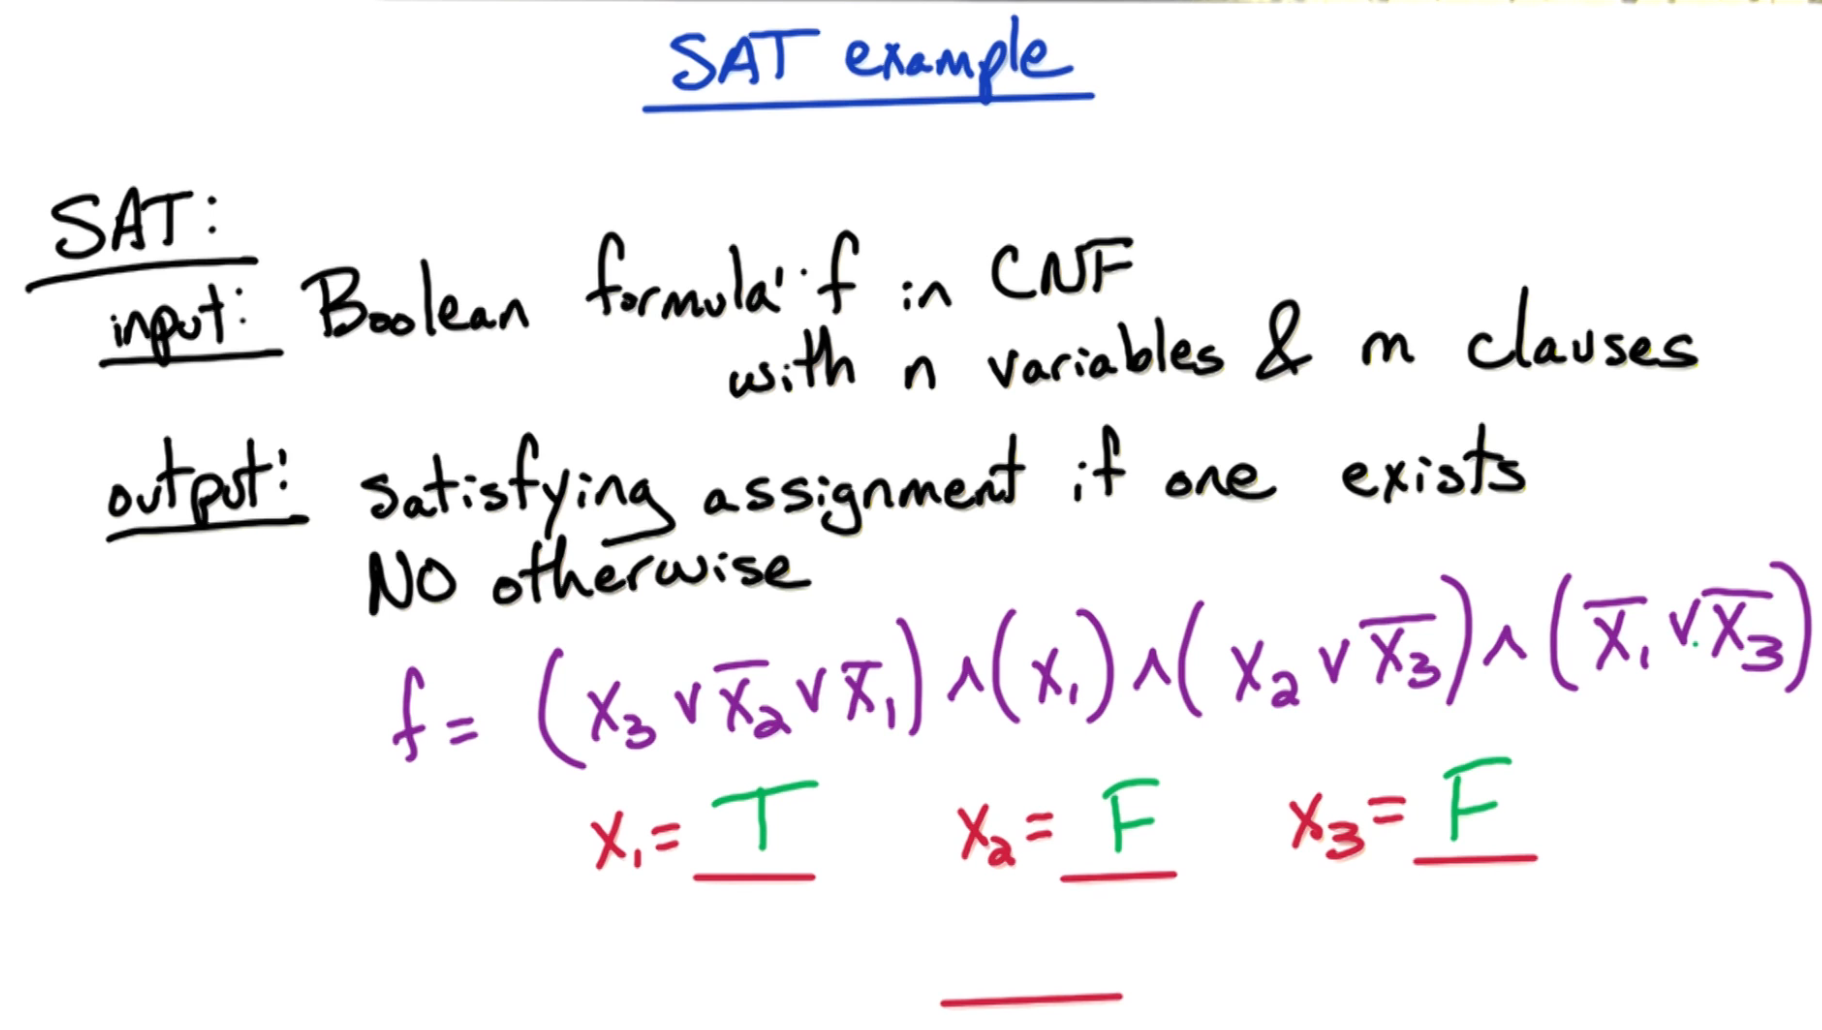 SAT example
SAT:
input: Boolean formula f in CNF
with n variables & m clauses
output: satisfying assignment if one exists
NO otherwise
f = (x₃ ∨ x̅₂ ∨ x̅₁) ∧ (x₁) ∧ (x₂ ∨ x̅₃) ∧ (x̅₁ ∨ x̅₃)
x₁ = T x₂ = F x₃ = F